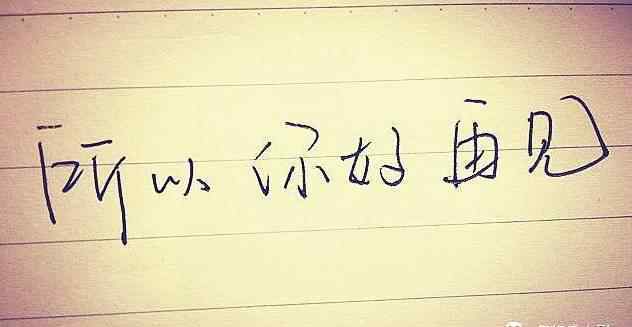 所以你好再见